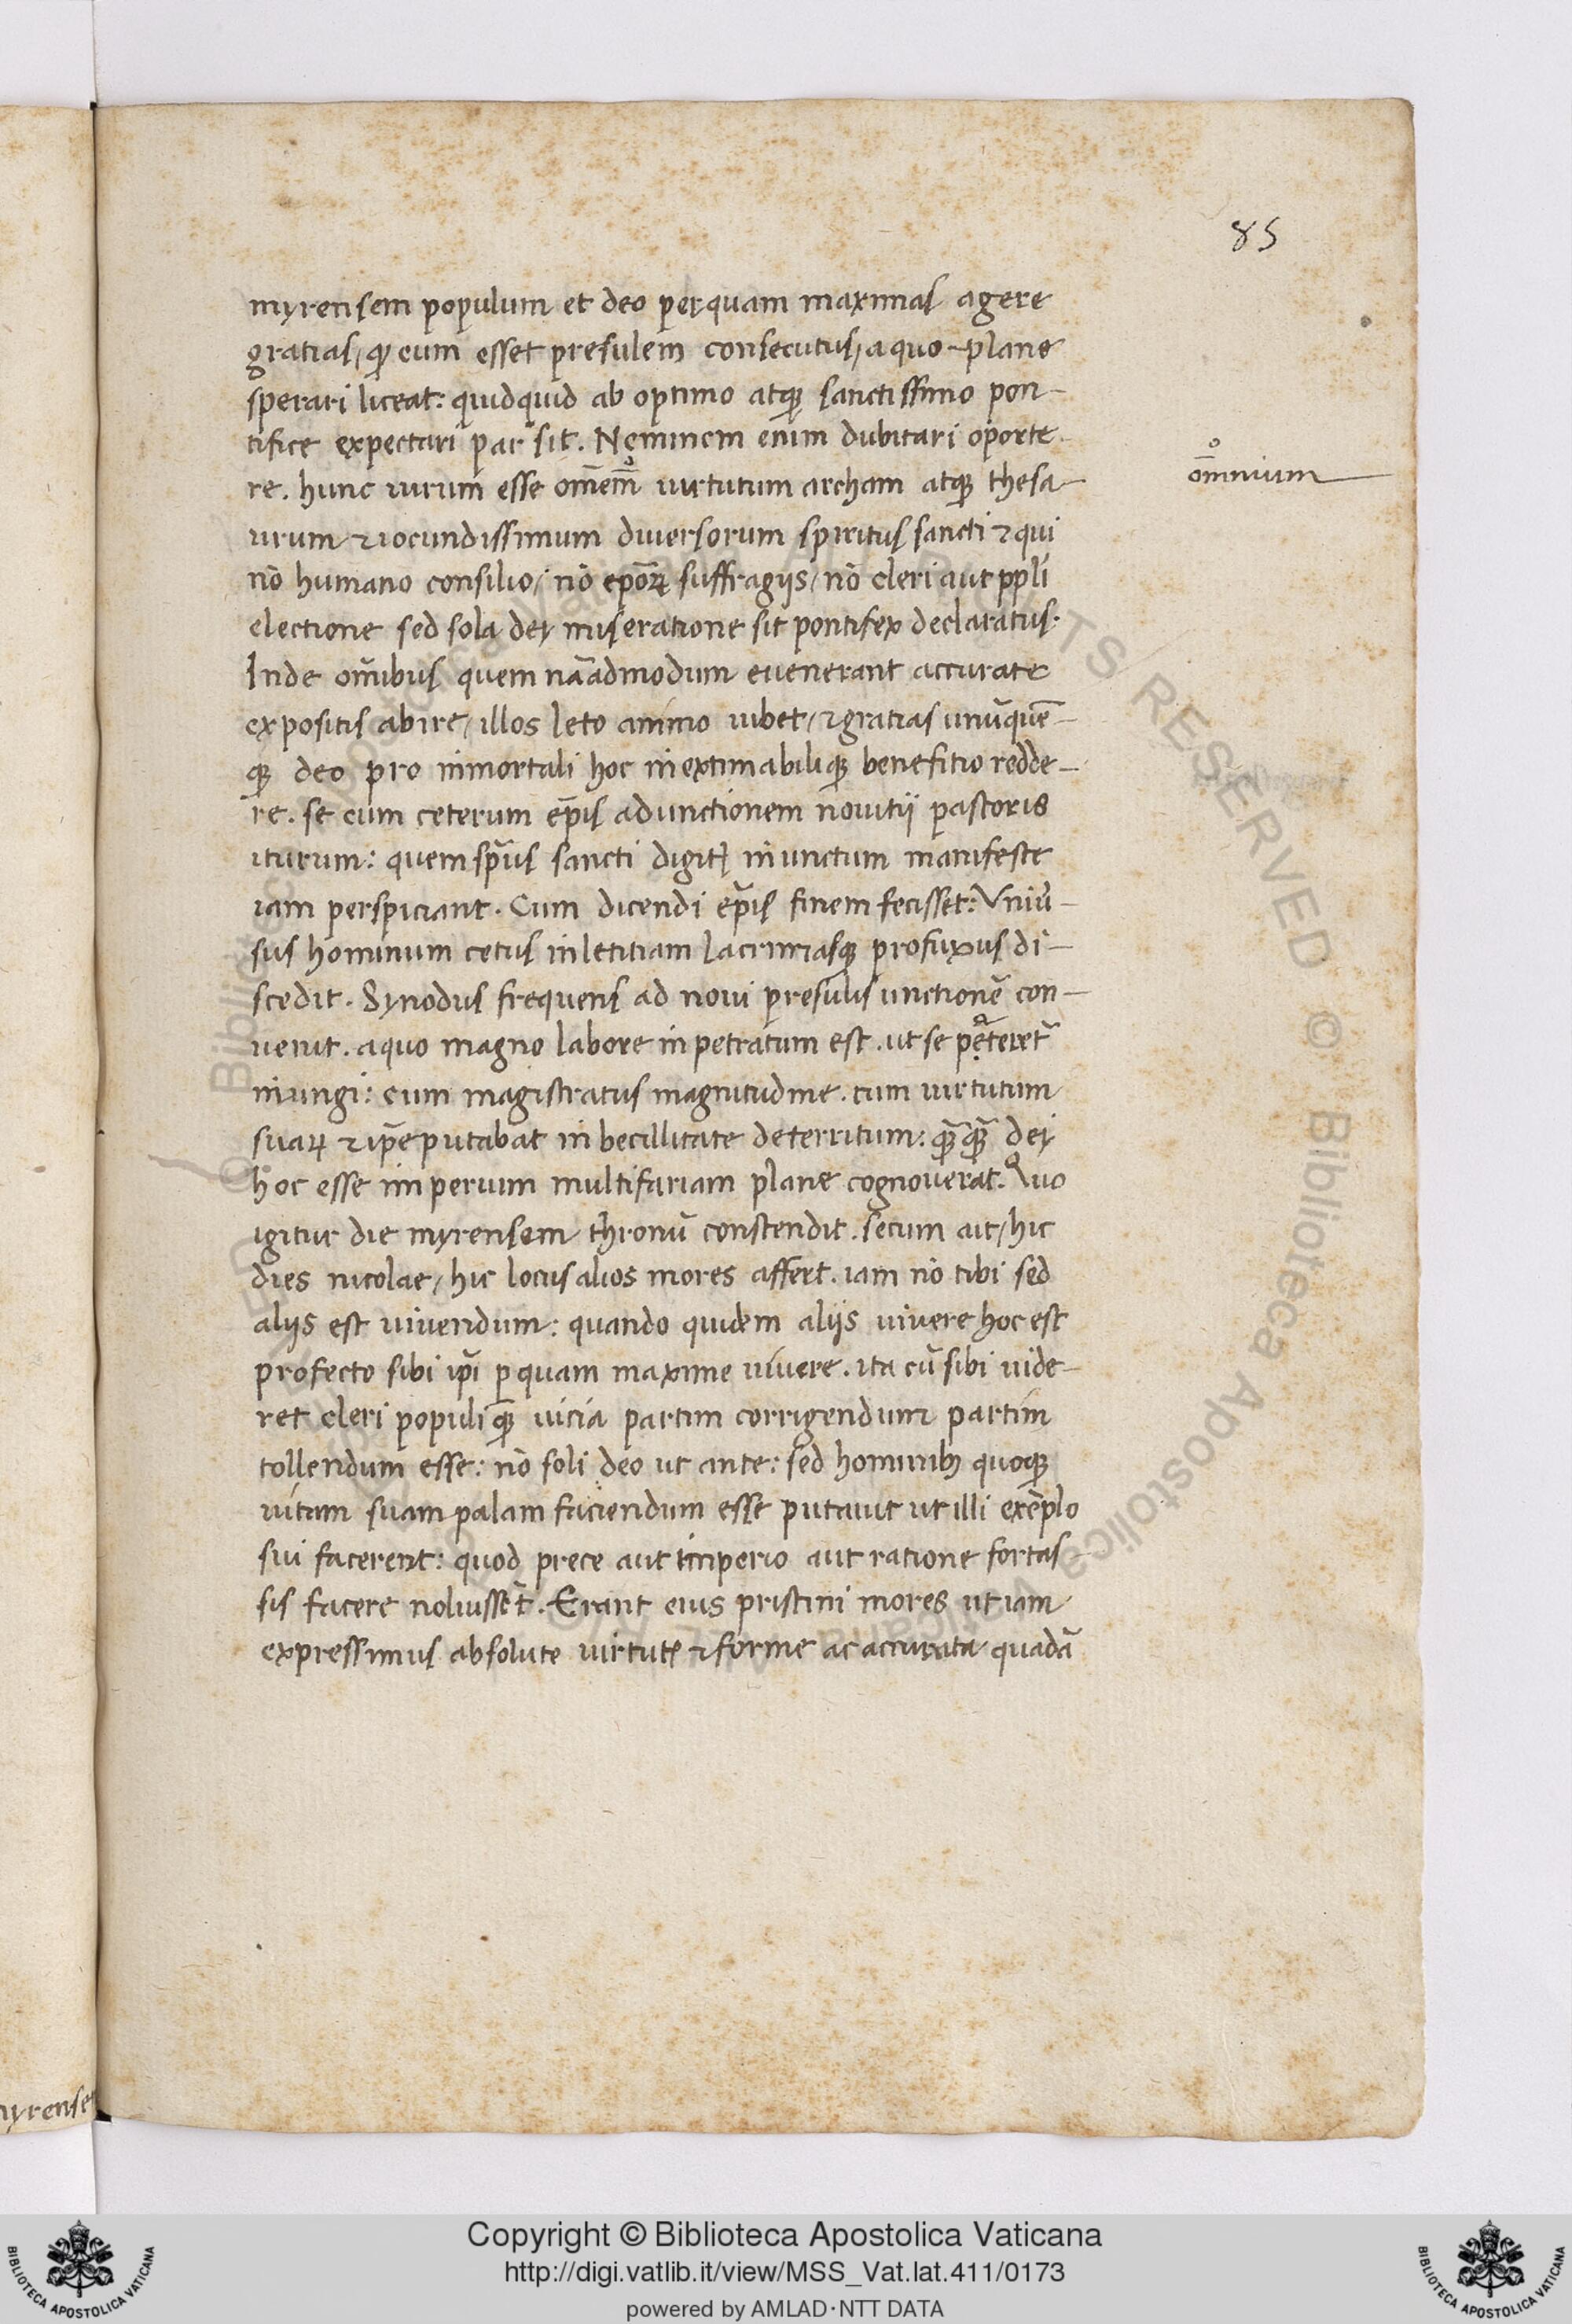 85
myrensem populum et deo perquam maximas agere
gratias, qꝫ eum esset presulem consecutus, a quo plane
sperari liceat: quidquid ab optimo atqꝫ sanctissimo pon-
tifice expectari par sit. Neminem enim dubitari oporte-
re. hunc uirum esse om̄em̄ uirtutum archam atqꝫ thesa-
omnium
urum ⁊ iocundissimum diuersorum spiritus sancti ⁊ qui
nō humano consilio, nō epōꝝ suffragijs, nō cleri aut ppli
electione sed sola dei miseratione sit pontifex declaratus.
Inde om̄ibus quem nāadmodum euenerant accurate
expositis abire, illos leto animo iubet, ⁊ gratias unūquē-
qꝫ deo pro inmortali hoc inextimabiliqꝫ benefitio redde-
re. se cum ceterum ep̄is ad unctionem nouitij pastoris
iturum: quem sp̄us sancti digitꝭ inunctum manifeste
iam perspiciant. Cum dicendi ep̄is finem fecisset: Vniū-
sus hominum cetus in letitiam lacrimasqꝫ profuxus di-
scedit. Synodus frequens ad noui presulis unctionē con-
uenit. a quo magno labore inpetratum est. ut se
inungi: cum magistratus magnitudine. tum uirtutum
suaꝝ ⁊ ip̄e putabat inbecillitate deterritum: qꝫ̄qꝫ̄ dei
hoc esse imperium multifariam plane cognouerat. Quo
igitur die myrensem thronū conscendit. secum ait, hic
dies nicolae, hic locus alios mores affert. iam nō tibi sed
alijs est uiuendum: quando quidem alijs uiuere hoc est
profecto sibi ip̄i ꝑquam maxime uiuere. ita cū sibi uide-
ret cleri populiqꝫ̄ uicia partim corrigendum partim
tollendum esse: nō soli deo ut ante: sed hominibꝫ quoqꝫ
uitam suam palam faciendum esse putauit ut illi exēplo
sui facerent: quod prece aut imperio aut ratione fortas-
sis facere noluissēt. Erant eius pristini mores ut iam
expressimus absolute uirtutꝭ ⁊ forme ac accurata quadā
myrense
Copyright © Biblioteca Apostolica Vaticana
http://digi.vatlib.it/view/MSS_Vat.lat.411/0173
powered by AMLAD·NTT DATA